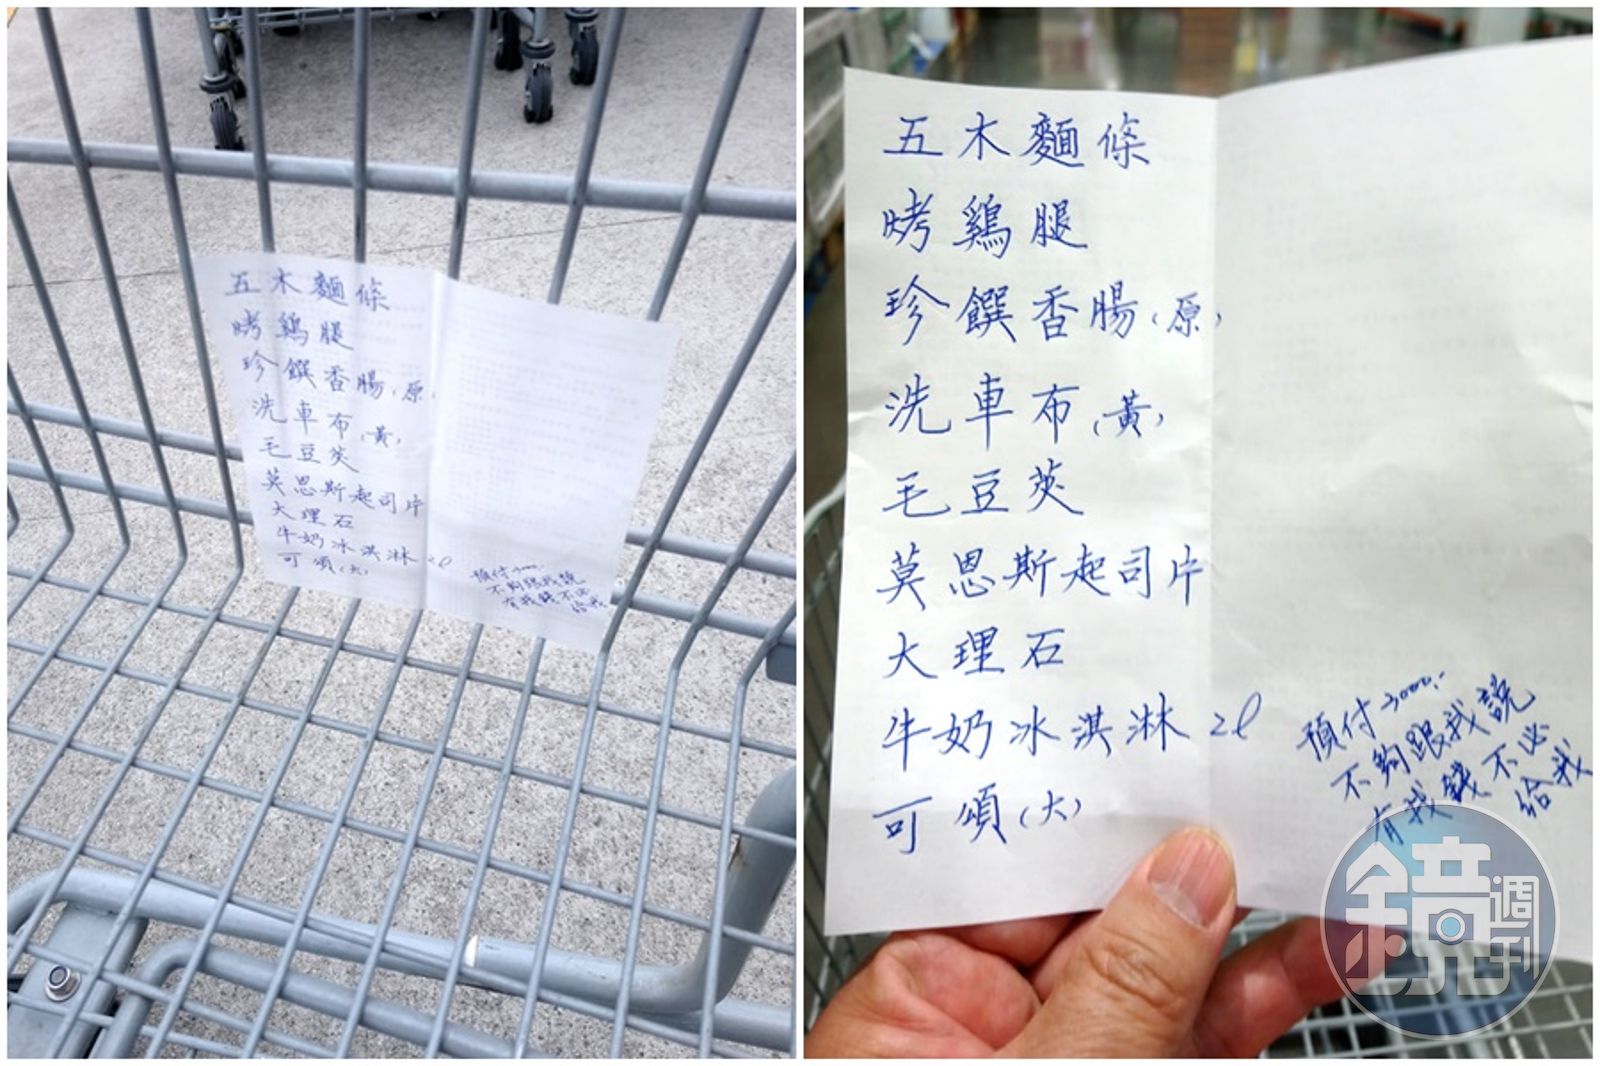 五木麵條
烤鷄腿
珍饌香腸(原)
洗車布(黃)
毛豆莢
莫恩斯起司片
大理石
牛奶冰淇淋 2ℓ
可頌(大)
預付3000.-
不夠跟我說
有我錢不必
給我
五木麵條
烤鷄腿
珍饌香腸(原)
洗車布(黃)
毛豆莢
莫恩斯起司片
大理石
牛奶冰淇淋 2ℓ
可頌(大)
預付3000.-
不夠跟我說
有我錢不必
給我
鏡週刊